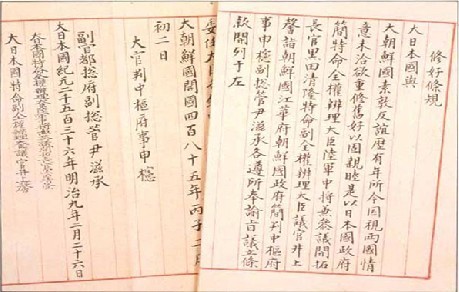 修好條規
大日本國與
大朝鮮國素敦友誼歷有年所今因視兩國情
意未洽欲重修舊好以固親睦是以日本國政府
簡特命全權辨理大臣陸軍中將兼參議開拓
長官黑田清隆特命副全權辨理大臣議官井上
馨詣朝鮮國江華府朝鮮國政府簡判中樞府
事申櫶副摠管尹滋承各遵所奉諭旨議立條
款開列于左
大朝鮮國開國四百八十五年丙子二月
初二日
大官判中樞府事申櫶
副官都摠府副摠管尹滋承
大日本國紀元二千五百三十六年明治九年二月二十六日
大日本國特命副全權辨理大臣議官井上馨